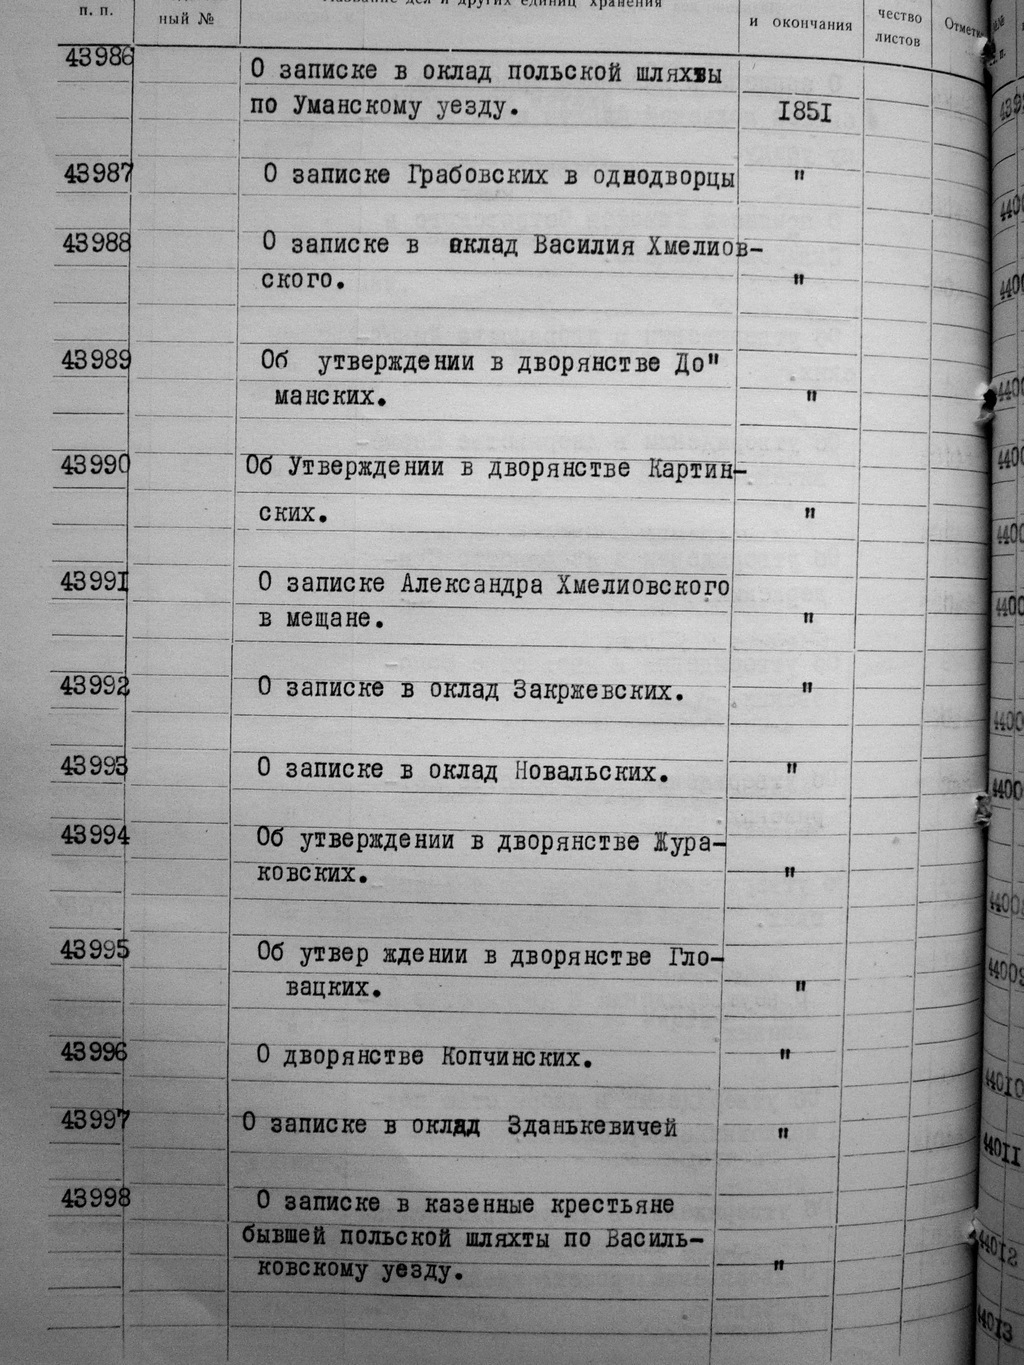 п. п.
ный №
Название дел и других единиц хранения
и окончания
чество
листов
43986
О записке в оклад польской шляхты
по Уманскому уезду.
1851
43987
О записке Грабовских в однодворцы
"
43988
О записке в оклад Василия Хмелиов-
ского.
"
43989
Об утверждении в дворянстве До"
манских.
"
43990
Об Утверждении в дворянстве Картин-
ских.
"
43991
О записке Александра Хмелиовского
в мещане.
"
43992
О записке в оклад Закржевских.
"
43993
О записке в оклад Новальских.
"
43994
Об утверждении в дворянстве Жура-
ковских.
"
43995
Об утвер ждении в дворянстве Гло-
вацких.
"
43996
О дворянстве Копчинских.
"
43997
О записке в оклад Зданькевичей
"
43998
О записке в казенные крестьяне
бывшей польской шляхты по Василь-
ковскому уезду.
"
44010
44011
44012
44013